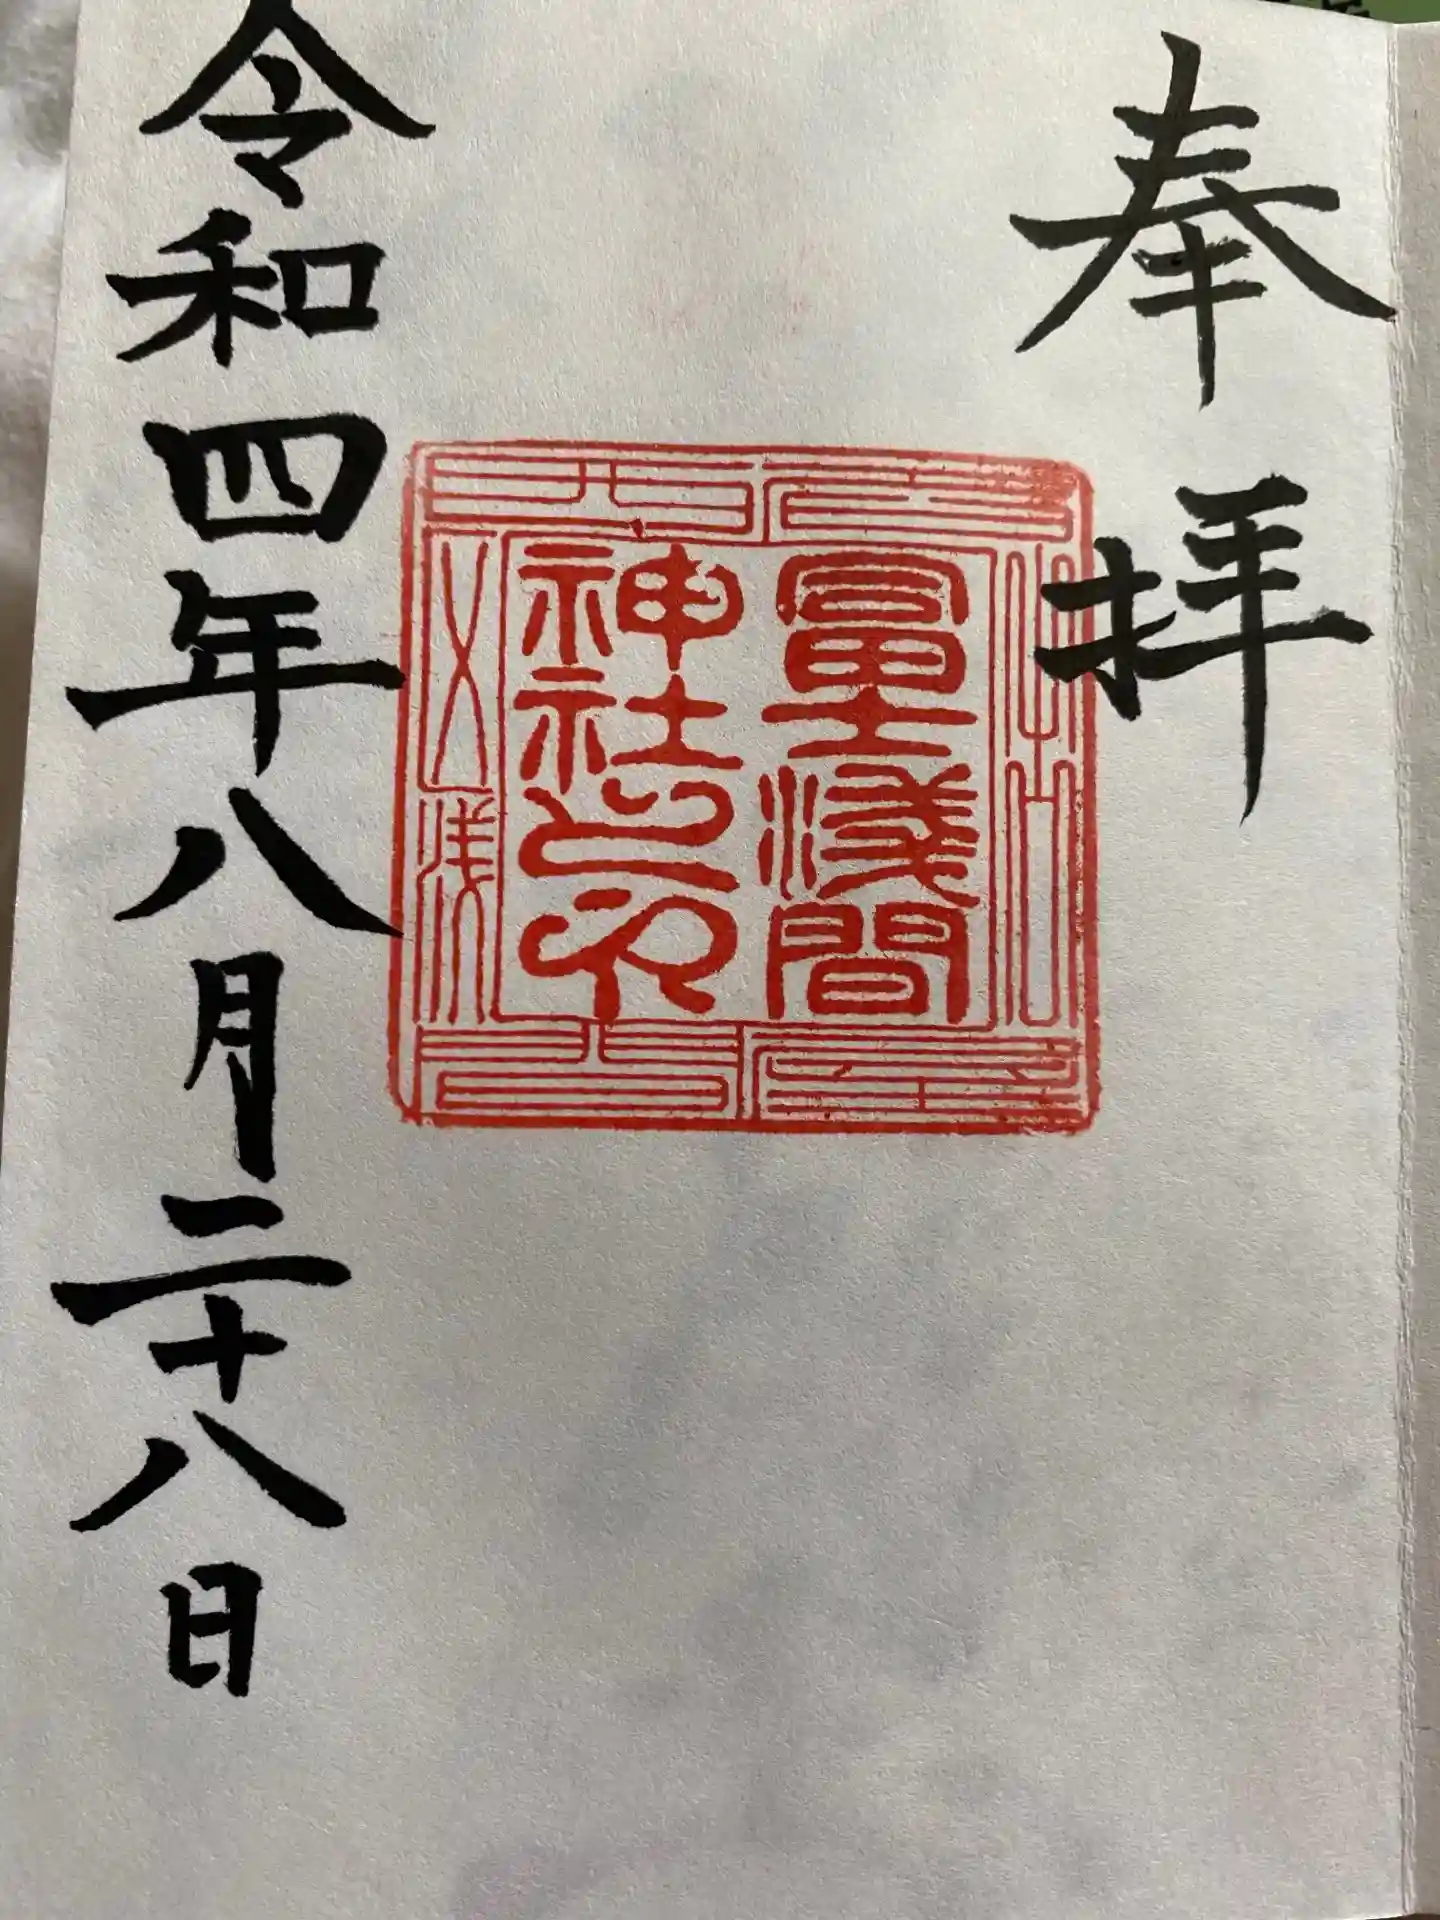 奉拝
冨士淺間
神社之印
令和四年八月二十八日